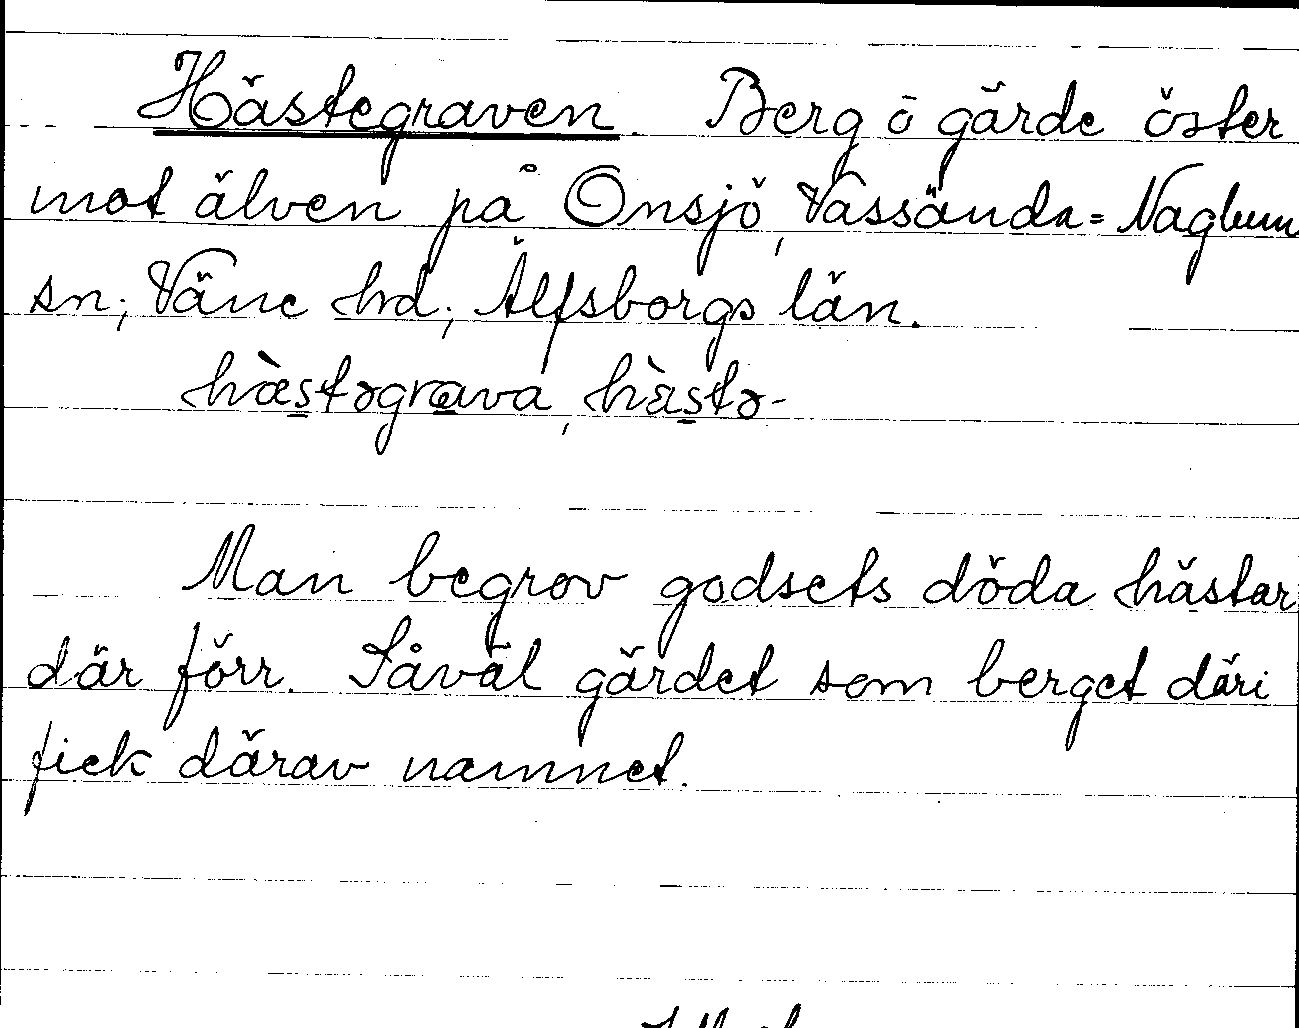 Hästegraven. Berg o gärde öster
mot älven på Onsjö, Vassända=Naglum
sn; Väne hd; Älfsborgs län.
hæ̀stəgrava, hɛ̀stə-
Man begrov godsets döda hästar
där förr. Såväl gärdet som berget däri
fick därav namnet.